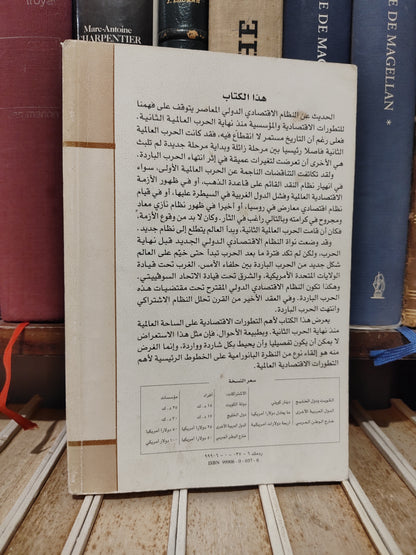 troyat
Marc-Antoine
CHARPENTIER
DE MAGELLAN
DE MAGELLAN
هذا الكتاب
الحديث عن النظام الاقتصادي الدولي المعاصر يتوقف على فهمنا
للتطورات الاقتصادية والمؤسسية منذ نهاية الحرب العالمية الثانية.
فعلى رغم أن التاريخ مستمر لا انقطاع فيه، فقد كانت الحرب العالمية
الثانية فاصلا رئيسيا بين مرحلة زائلة وبداية مرحلة جديدة لم تلبث
هي الأخرى أن تعرضت لتغيرات عميقة في إثر انتهاء الحرب الباردة.
ولقد تكاتفت التناقضات الناجمة عن الحرب العالمية الأولى، سواء
في انهيار نظام النقد القائم على قاعدة الذهب، أو في ظهور الأزمة
الاقتصادية العالمية وفشل الدول الغربية في السيطرة عليها، أو في قيام
نظام اقتصادي معارض في روسيا، أو أخيرا في ظهور نظام نازي معاد
ومجروح في كرامته وبالتالي راغب في الثأر. وكان لا بد من وقوع الأزمة،
فكان أن قامت الحرب الثانية، وبدأ العالم يتطلع إلى نظام جديد.
وقد وضعت نواة النظام الاقتصادي الدولي الجديد قبل نهاية
الحرب، ولكن لم تكد فترة ما بعد الحرب تبدأ حتى خيّم على العالم
شكل جديد من الحرب الباردة بين حلفاء الأمس، الغرب تحت قيادة
الولايات المتحدة الأمريكية، والشرق تحت قيادة الاتحاد السوفييتي.
وهكذا تكون النظام الاقتصادي الدولي المقترح تحت مقتضيات هذه
الحرب الباردة. وفي العقد الأخير من القرن تحلل النظام الاشتراكي
وانتهت الحرب الباردة.
يعرض هذا الكتاب لأهم التطورات الاقتصادية على الساحة العالمية
منذ نهاية الحرب الثانية. وبطبيعة الأحوال، فإن مثل هذا الاستعراض
لا يمكن أن يكون تفصيليا وأن يحيط بكل شاردة وواردة. وإنما الغرض
منه هو إلقاء نوع من النظرة البانورامية على الخطوط الرئيسية لأهم
التطورات الاقتصادية العالمية.
سعر النسخة
الاشتراكات: أفراد مؤسسات
الكويت ودول الخليج دينار كويتي دولة الكويت ١٥ د. ك ٢٥ د. ك
الدول العربية الأخرى ما يعادل دولارا أمريكيا دول الخليج ١٧ د. ك ٣٠ د. ك
خارج الوطن العربي أربعة دولارات أمريكية الدول العربية الأخرى ٢٥ دولارا أمريكيا ٥٠ دولارا أمريكيا
خارج الوطن العربي ٥٠ دولارا أمريكيا ١٠٠ دولار أمريكي
ISBN 99906 - 0 - 037 - 6